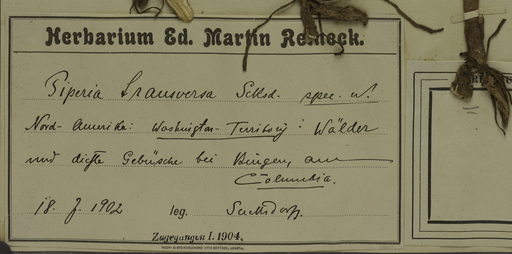 Herbarium Ed. Martin Reineck.
Piperia transversa Sksd. spec. n.
Nord-Amerika: Washington-Territory: Wälder
und dichte Gebüsche bei Bingen, am
Columbia.
18. 7. 1902 leg. Suksdorf.
Zugegangen I. 1904.